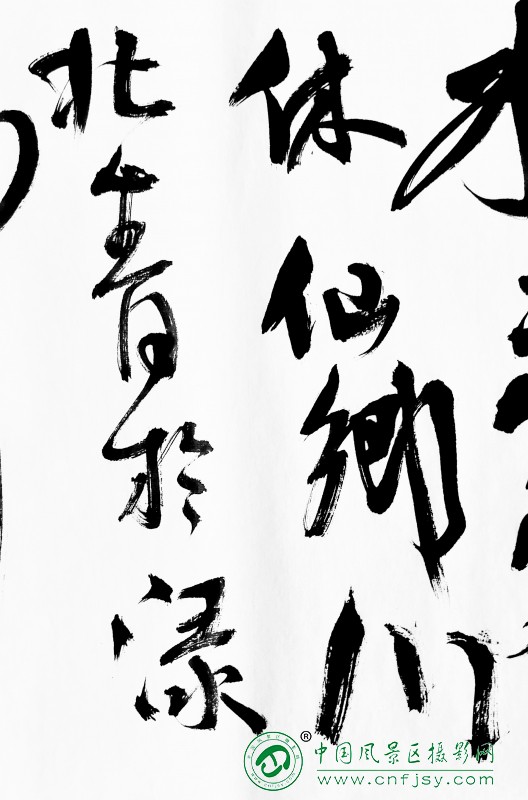 休仙鄉川
北青於渌
中国风景区摄影网®
www.cnfjsy.com